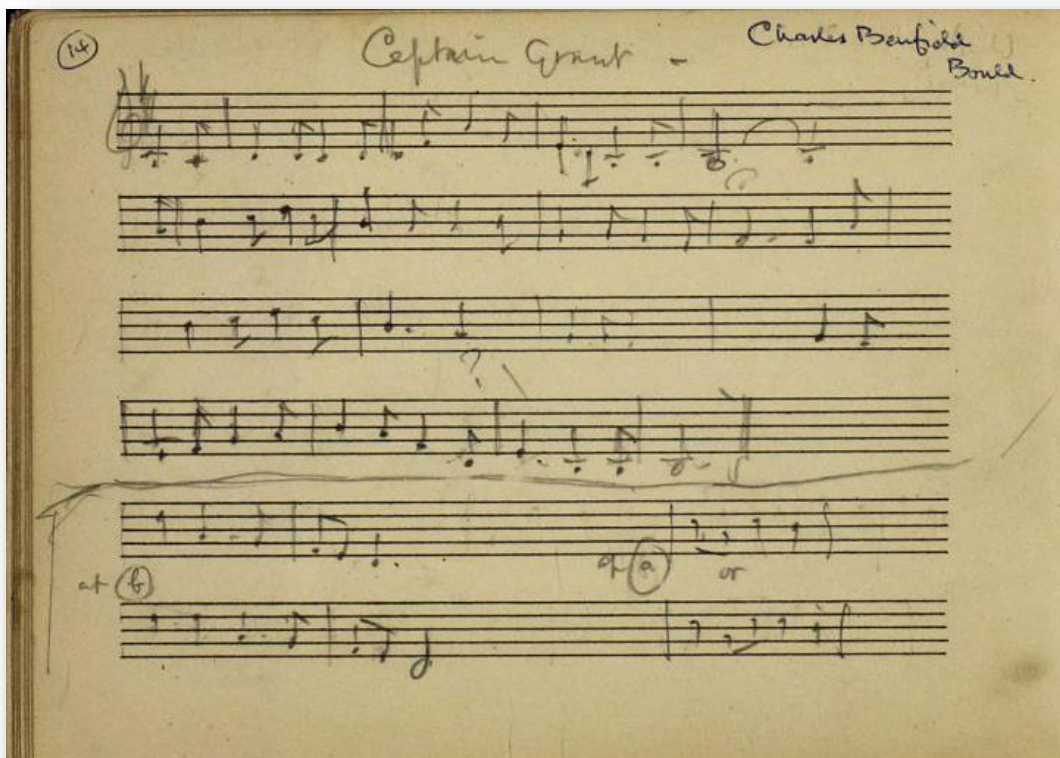 14
Captain Grant -
Charles Benfield
Bould.
?
at b
at a or